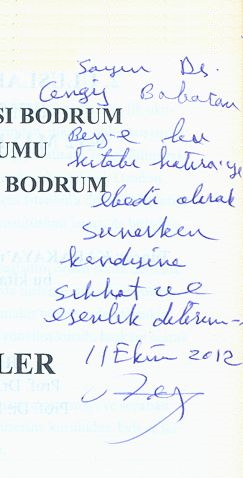 Sayın Dr.
Cengiz Babacan
SI BODRUM
Bey-e bu
UMU
kitabı hatıra-yı
BODRUM
ebedi olarak
sunarken
kendisine
sıhhat ve
esenlik dilerim
LER
11 Ekim 2012